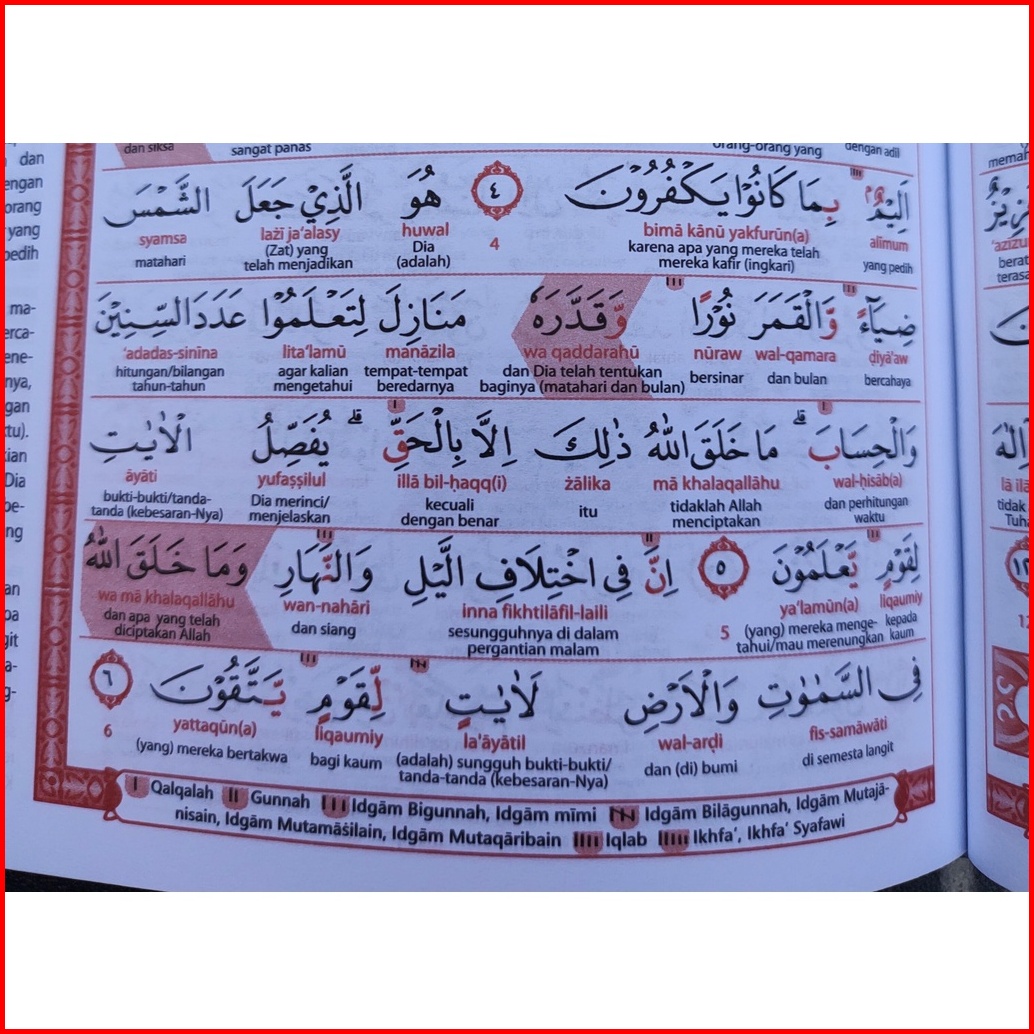 dan siksa sangat panas orang-orang yang dengan adil
اَلِيْمٌۢ بِمَا كَانُوْا يَكْفُرُوْنَ ٤ هُوَ الَّذِيْ جَعَلَ الشَّمْسَ
alīmum bimā kānū yakfurūn(a) 4 huwal lażī ja'alasy syamsa
yang pedih karena apa yang mereka telah Dia (Zat) yang matahari
mereka kafir (ingkari) (adalah) telah menjadikan
ضِيَاۤءً وَّالْقَمَرَ نُوْرًا وَّقَدَّرَهٗ مَنَازِلَ لِتَعْلَمُوْا عَدَدَ السِّنِيْنَ
ḍiyā'aw wal-qamara nūraw wa qaddarahū manāzila lita'lamū 'adadas-sinīna
bercahaya dan bulan bersinar dan Dia telah tentukan tempat-tempat agar kalian hitungan/bilangan
baginya (matahari dan bulan) beredarnya mengetahui tahun-tahun
وَالْحِسَابَۗ مَا خَلَقَ اللّٰهُ ذٰلِكَ اِلَّا بِالْحَقِّۗ يُفَصِّلُ الْاٰيٰتِ
wal-ḥisāb(a) mā khalaqallāhu żālika illā bil-ḥaqq(i) yufaṣṣilul āyāti
dan perhitungan tidaklah Allah itu kecuali Dia merinci/ bukti-bukti/tanda-
waktu menciptakan dengan benar menjelaskan tanda (kebesaran-Nya)
لِقَوْمٍ يَّعْلَمُوْنَ ٥ اِنَّ فِى اخْتِلَافِ الَّيْلِ وَالنَّهَارِ وَمَا خَلَقَ اللّٰهُ
liqaumiy ya'lamūn(a) 5 inna fikhtilāfil-laili wan-nahāri wa mā khalaqallāhu
kepada (yang) mereka menge- sesungguhnya di dalam dan siang dan apa yang telah
kaum tahui/mau merenungkan pergantian malam diciptakan Allah
فِى السَّمٰوٰتِ وَالْاَرْضِ لَاٰيٰتٍ لِّقَوْمٍ يَّتَّقُوْنَ ٦
fis-samāwāti wal-arḍi la'āyātil liqaumiy yattaqūn(a) 6
di semesta langit dan (di) bumi (adalah) sungguh bukti-bukti/ bagi kaum (yang) mereka bertakwa
tanda-tanda (kebesaran-Nya)
Qalqalah Gunnah Idgām Bigunnah, Idgām mīmi Idgām Bilāgunnah, Idgām Mutajā-
nisain, Idgām Mutamāṡilain, Idgām Mutaqāribain Iqlab Ikhfa', Ikhfa' Syafawi